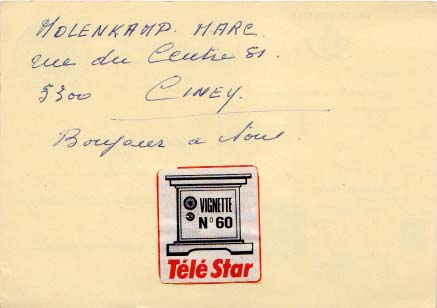 MOLENKAMP. MARC
rue du Centre 81.
5300 CINEY.
Bonjour a Vous.
VIGNETTE
N° 60
Télé Star